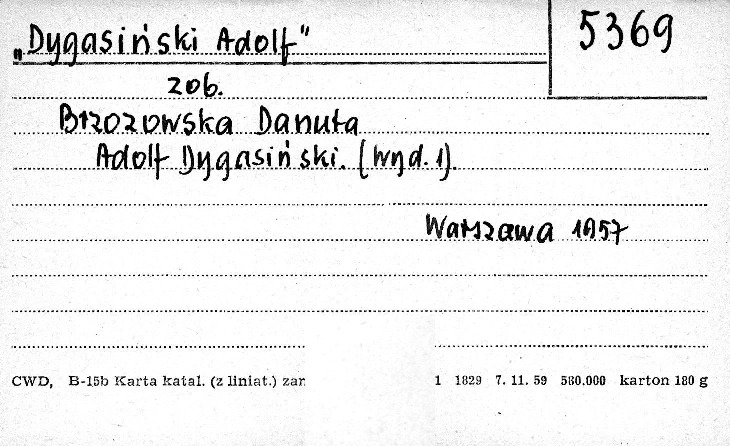 „Dygasiński Adolf" 5369
zob.
Brzozowska Danuta
Adolf Dygasiński. (Wyd. 1).
Warszawa 1957
CWD, B-15b Karta katal. (z liniat.) zar 1 1829 7. 11. 59 560.000 karton 180 g